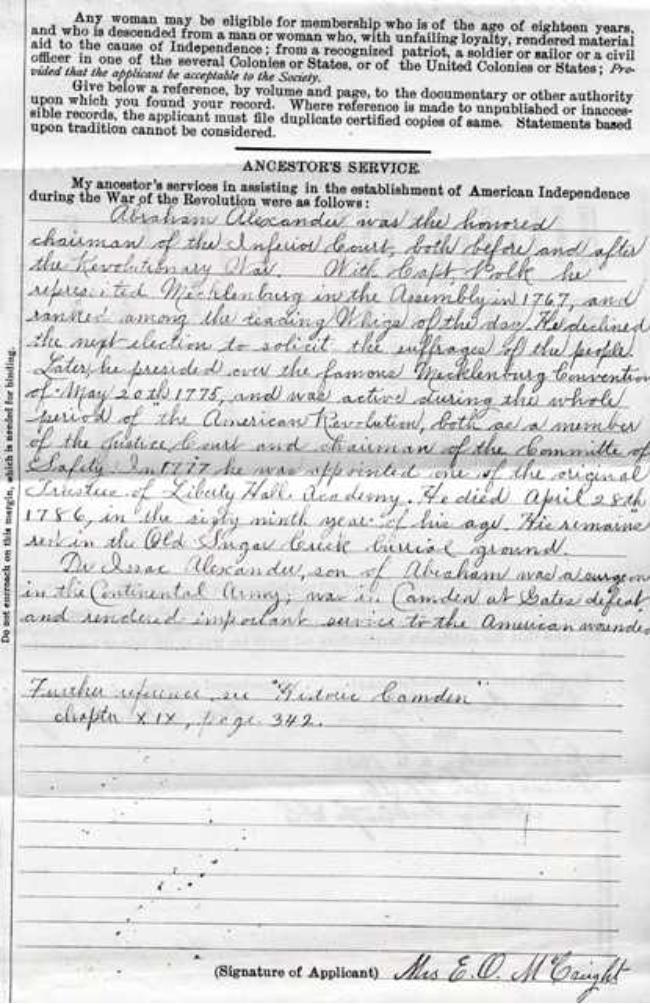 Any woman may be eligible for membership who is of the age of eighteen years,
and who is descended from a man or woman who, with unfailing loyalty, rendered material
aid to the cause of Independence; from a recognized patriot, a soldier or sailor or a civil
officer in one of the several Colonies or States, or of the United Colonies or States; Pro-
vided that the applicant be acceptable to the Society.
Give below a reference, by volume and page, to the documentary or other authority
upon which you found your record. Where reference is made to unpublished or inacces-
sible records, the applicant must file duplicate certified copies of same. Statements based
upon tradition cannot be considered.
ANCESTOR'S SERVICE.
My ancestor's services in assisting in the establishment of American Independence
during the War of the Revolution were as follows:
Abraham Alexander was the honored
chairman of the Inferior Court, both before and after
the Revolutionary War. With Capt. Polk he
represented Mecklenburg in the Assembly in 1767, and
ranked among the leading Whigs of the day. He declined
the next election to solicit the suffrages of the people.
Later, he presided over the famous Mecklenburg Convention
of May 20th 1775, and was active during the whole
period of the American Revolution, both as a member
of the Justice Court and chairman of the Committe of
Safety. In 1777 he was appointed one of the original
Trustees of Liberty Hall Academy. He died April 28th
1786, in the sixty ninth year of his age. His remains
rest in the Old Sugar Creek burrial ground.
Dr Issac Alexander, son of Abraham was a surgeon
in the Continental Army; was in Camden at Gates defeat
and rendered important service to the American wounded
Further reference, see "Historic Camden"
chapter XIX, page 342.
(Signature of Applicant) Mrs E. O. McCreight
Do not encroach on this margin, which is needed for binding.